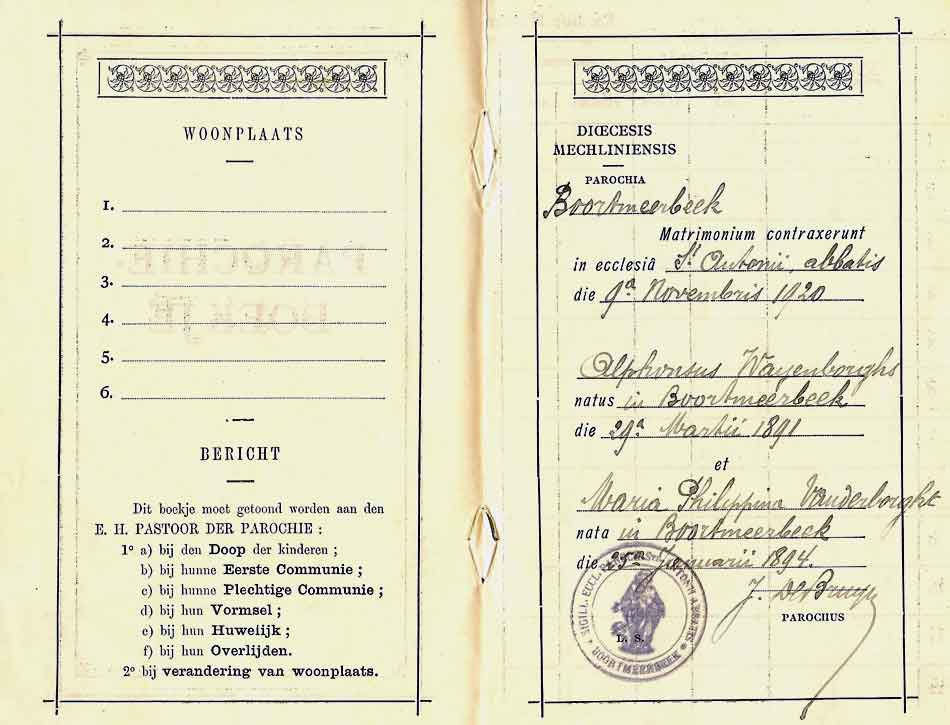 WOONPLAATS
1.
2.
3.
4.
5.
6.
BERICHT
Dit boekje moet getoond worden aan den
E. H. PASTOOR DER PAROCHIE :
1º a) bij den Doop der kinderen ;
b) bij hunne Eerste Communie ;
c) bij hunne Plechtige Communie ;
d) bij hun Vormsel ;
e) bij hun Huwelijk ;
f) bij hun Overlijden.
2º bij verandering van woonplaats.
PAROCHIE-
BOEKJE
DIŒCESIS
MECHLINIENSIS
PAROCHIA
Boortmeerbeek
Matrimonium contraxerunt
in ecclesiâ St Antonii, abbatis
die 9a Novembris 1920
Alphonsus Wayenborghs
natus in Boortmeerbeek
die 29a Martii 1891
et
Maria Philippina Vanderborght
nata in Boortmeerbeek
die Januarii 1894.
J. De Bruyn
PAROCHUS
L. S.
SIGILL. ECCL. ANTONII ABBATIS
BOORTMEERBEEK